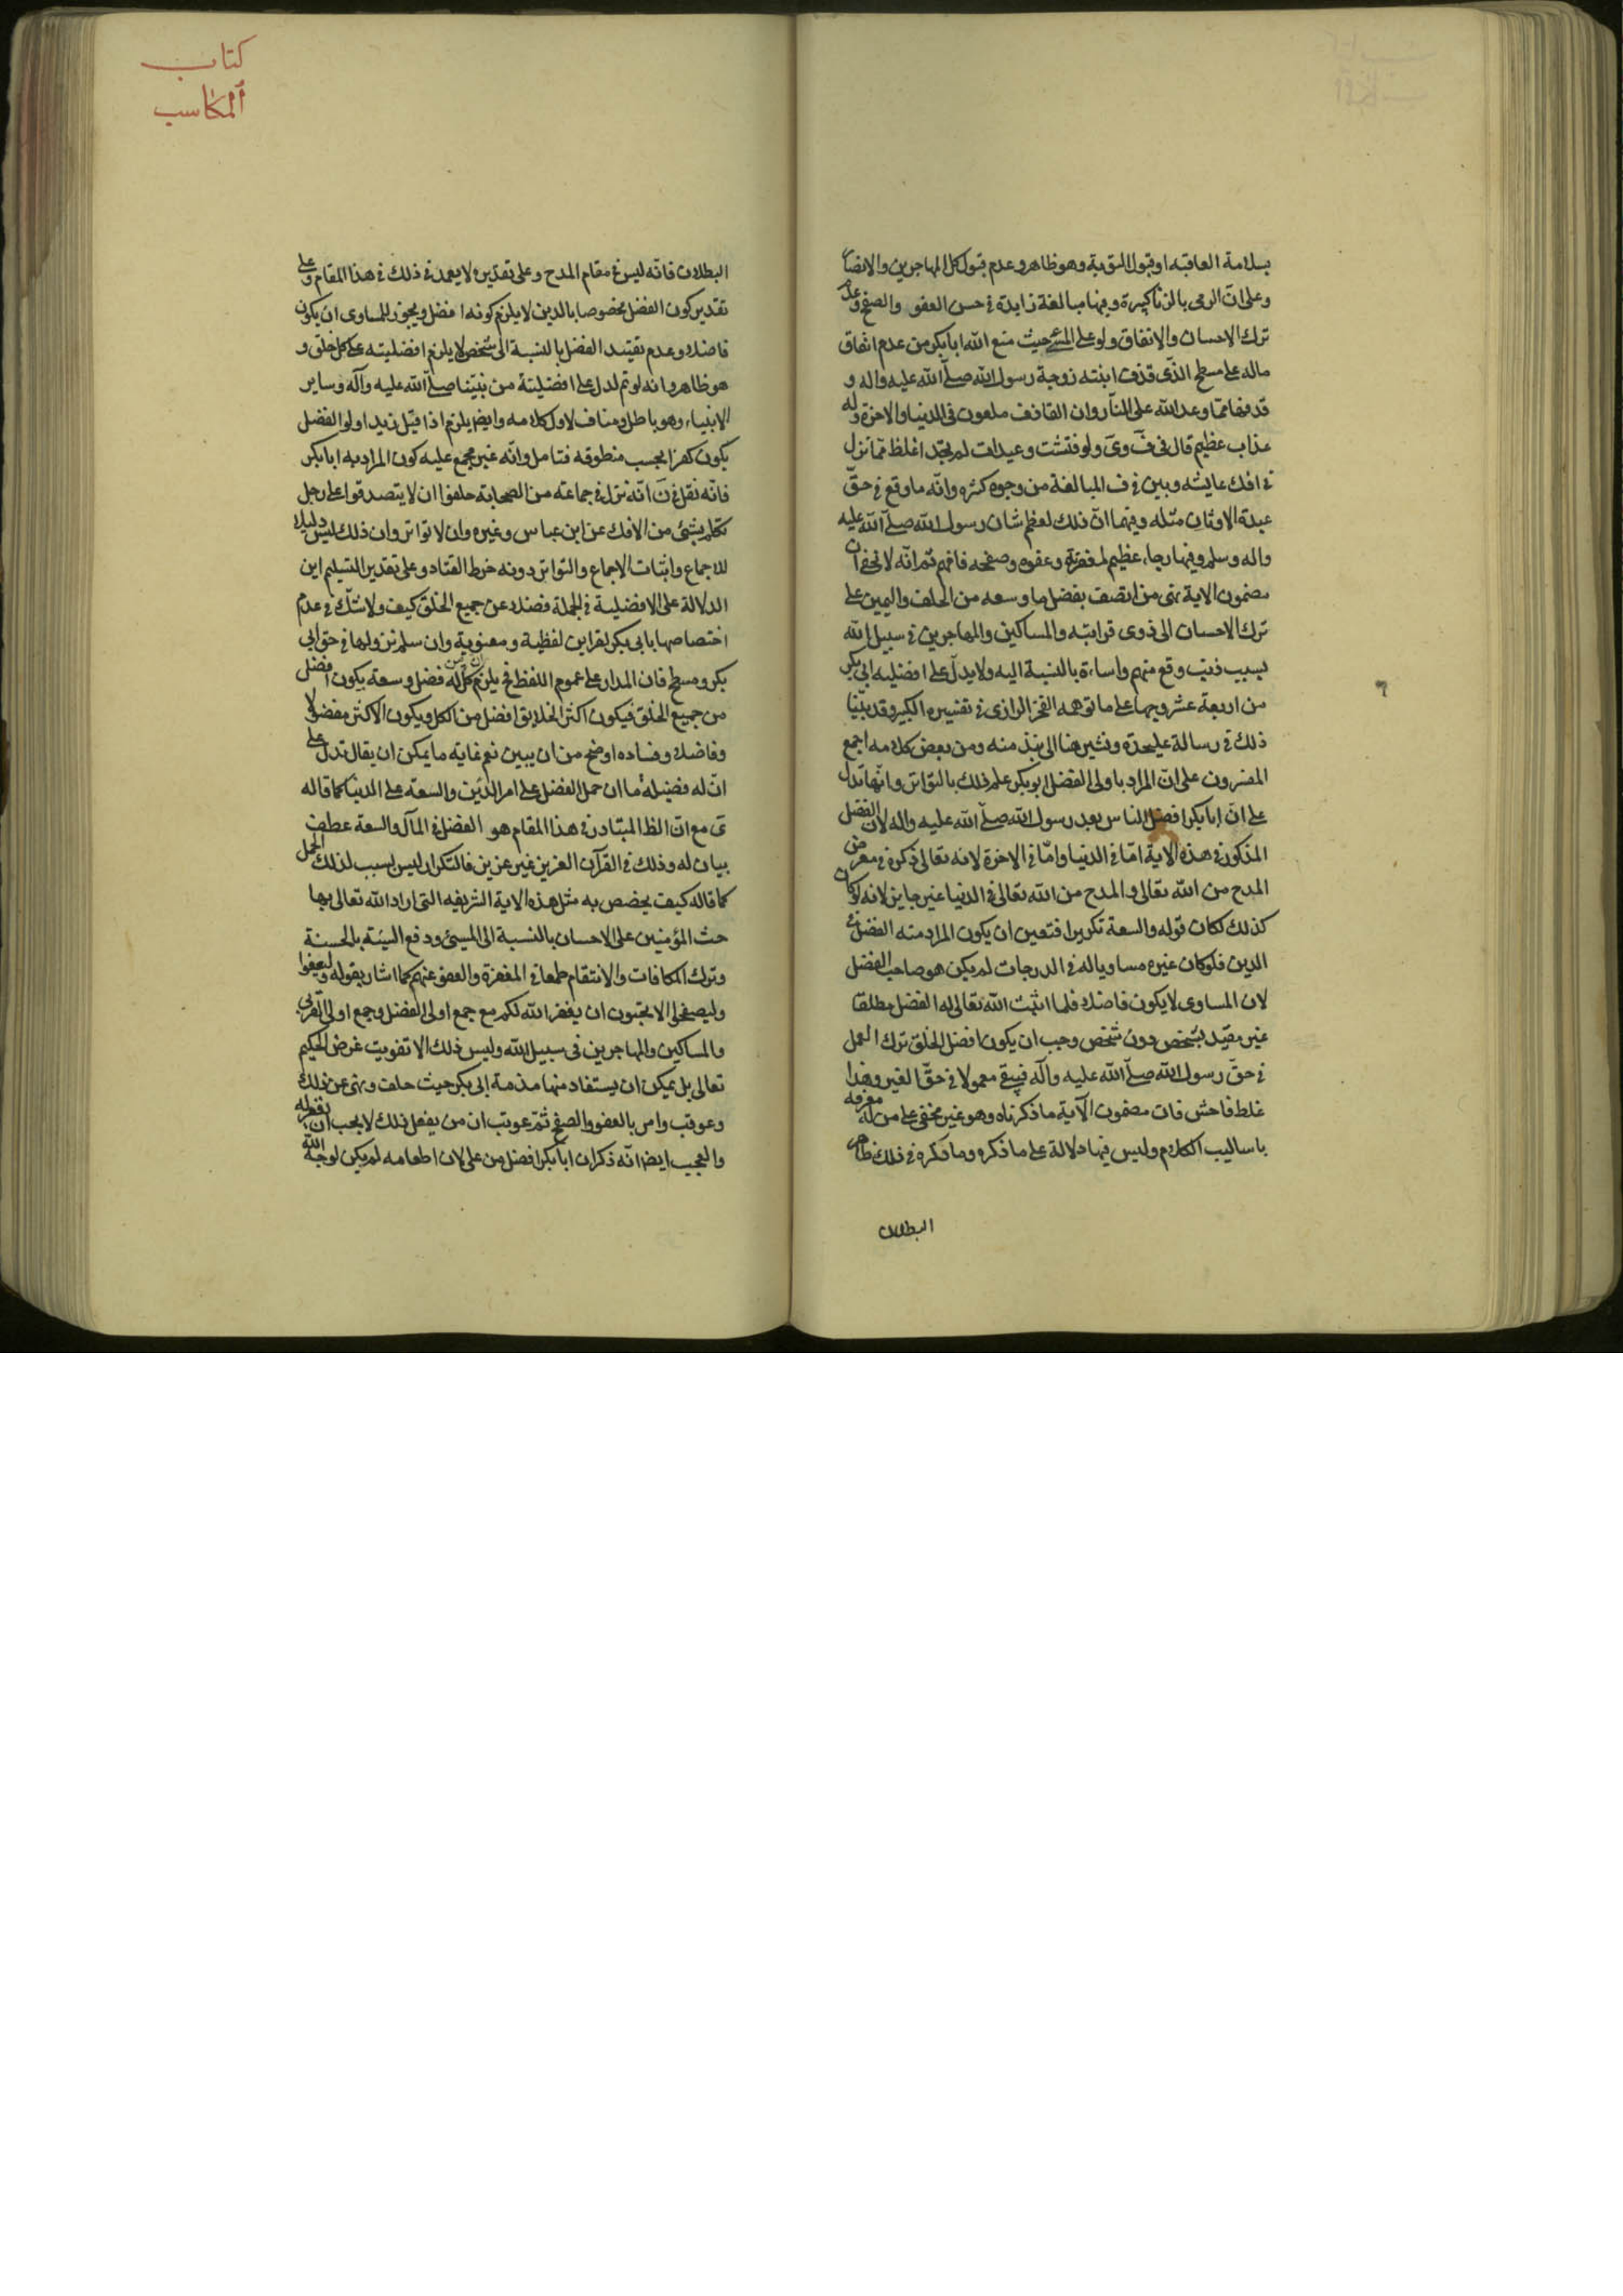 بسلامة العاقبه او قبول التوبة وهو ظاهر وعدم قبول كل المهاجرين والانصار
وعلى ان الرمى بالزنا كبيرة وفيها مبالغة زايدة فى حسن العفو والصفح وعدم
ترك الاحسان والانفاق ولو على المسئ حيث منع الله ابا بكر من عدم انفاق
ماله على مسطح الذى قذف ابنته زوجة رسول الله صلى الله عليه واله و
قذفها مما وعد الله على النار وان القاذف ملعون فى الدنيا والاخرة وله
عذاب عظيم قال فى ف وى ولو فتشت وعيدات لم تجد اغلظ مما نزل
فى افك عايشه وبين فى ف المبالغة من وجوه كثيره وانه ما وقع فى حق
عبدة الاوثان مثله وفيهما ان ذلك لعظم شان رسول الله صلى الله عليه
واله وسلم وفيها رجاء عظيم لمغفرته وعفوه وصفحه فافهم ثم انه لا تخفى ان
مضمون الاية نهى من اتصف بفضل ما وسعه من الحلف واليمين على
ترك الاحسان الى ذوى قرابته والمساكين والمهاجرين فى سبيل الله
بسبب ذنب وقع منهم واساءة بالنسبة اليه ولا يدل على افضليه ابى بكر
من اربعة عشر وجها على ما توهمه الفخر الرازى فى تفسيره الكبير وقد بيّنا
ذلك فى رسالة عليحدة ونشير هنا الى نبذ منه ومن بعض كلامه اجمع
المفسرون على ان المراد باولى الفضل ابو بكر علم ذلك بالتواتر وانها تدل
على ان ابا بكر افضل الناس بعد رسول الله صلى الله عليه واله لان الفضل
المذكور فى هذه الاية اما فى الدنيا واما فى الاخرة لانه تعالى ذكره فى معرض
المدح من الله تعالى والمدح من الله تعالى فى الدنيا غير جايز لانه لو كان
كذلك لكان قوله والسعة تكريرا فتعين ان يكون المراد منه الفضل فى
الدين فلو كان غيره مساويا له فى الدرجات لم يكن هو صاحب الفضل
لان المساوى لا يكون فاضلا فلما اثبت الله تعالى له الفضل مطلقا
غير مقيد بشخص دون شخص وجب ان يكون افضل الخلق ترك العمل
فى حق رسول الله صلى الله عليه وآله فيبقى معمولا فى حق الغير وهذا
غلط فاحش فان مضمون الآية ما ذكرناه وهو غير مخفى على من له معرفه
باساليب الكلام وليس فيها دلالة على ما ذكره وما ذكره فى ذلك ظاهر
البطلان
كتاب
المكاسب
البطلان فانه ليس فى مقام المدح وعلى تقديره لا يعمد فى ذلك فى هذا المقام وعلى
تقدير كون الفضل مخصوصا بالدين لا يلزم كونه افضل ويجوز للمساوى ان يكون
فاضلا وعدم تقييد الفضل بالنسبة الى شخص لا يلزم افضليته على كل خلق و
هو ظاهر وانه لو تم لدل على افضليتة من نبيّنا صلى الله عليه وآله وساير
الانبياء وهو باطل ومناف لاول كلامه وايضا يلزم اذا قيل زيد اولو الفضل
يكون كفرا بحسب منطوقه فتامل وانه غير مجمع عليه كون المراد به ابا بكر
فانه نقل فى ن انه نزل فى جماعته من الصحابة حلفوا ان لا يتصدقوا على رجل
تكلم بشئ من الافك عن ابن عباس وغيره وان لا تواتر وان ذلك ليس دليلا
للاجماع واثبات الاجماع والتواتر دونه خرط القتاد وعلى تقدير التسليم اين
الدلالة على الافضلية فى الجملة فضلا عن جميع الخلق كيف ولا شك فى عدم
اختصاصها بابى بكر لقراين لفظية ومعنوية وان سلم نزولها فى حق ابى
بكر ومسطح فان المدار على عموم اللفظ فح يلزم ان كل من له فضل وسعة يكون افضل
من جميع الخلق فيكون اكثر الخلايق افضل من الكل ويكون الاكثر مفضولا
وفاضلا وفساده اوضح من ان يبين نعم غايته ما يمكن ان يقال تدل على
ان له فضيله ما ان حمل الفضل على امر الدين والسعة على الدنيا كما قاله
ى مع ان الظ المتبادر فى هذا المقام هو الفضل فى المال والسعة عطف
بيان له وذلك فى القرآن العزيز غير عزيز فالتكرار ليس بسبب لذلك الحمل
كما قاله كيف يخصص به مثل هذه الاية الشريفه التى اراد الله تعالى بها
حث المؤمنين على الاحسان بالنسبة الى المسيئ ودفع السيئة بالحسنة
وترك المكافات والانتقام طمعا فى المغفرة والعفو عنهم كما اشار بقوله وليعفوا
وليصفحوا الا تحبون ان يغفر الله لكم مع جمع اولى الفضل وجمع اولى القربى
والمساكين والمهاجرين فى سبيل الله وليس ذلك الا تفويت غرض الحكيم
تعالى بل يمكن ان يستفاد منها مذمة ابى بكر حيث حلف ونهى عن ذلك
وعوقب وامر بالعفو والصفح ثم عوتب ان من يفعل ذلك لا يحب ان يغفر له
والعجيب ايضا انه ذكر ان ابا بكر افضل من على لان اطعامه لم يكن لوجه الله